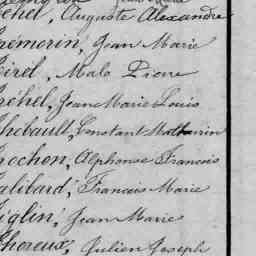 éhel, Auguste Alexandre
rémorin, Jean Marie
irel, Malo Pierre
réhel, Jean Marie Louis
hébault, Constant Mathurin
rochon, Alphonse François
alibard, François Marie
iglin, Jean Marie
horeux, Julien Joseph